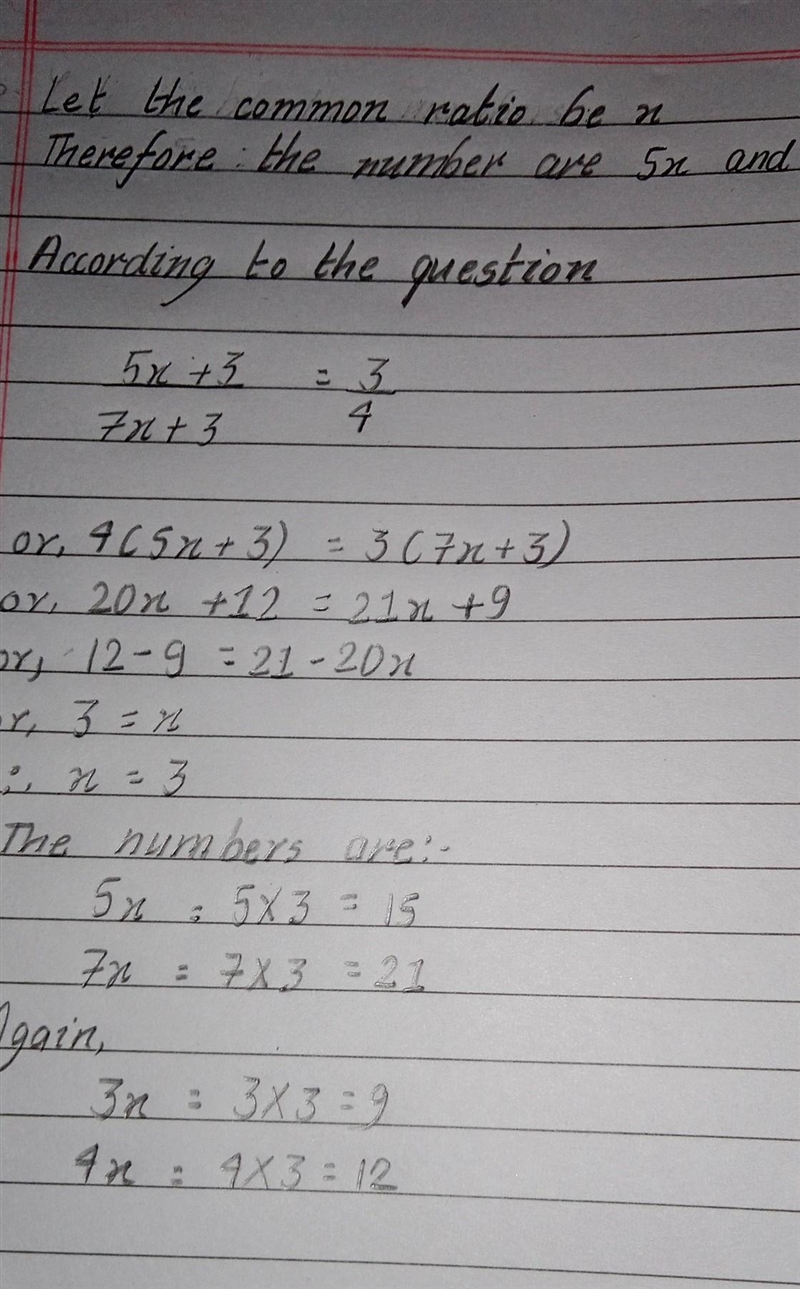 Let the common ratio be x
Therefore the number are 5x and
According to the question
5x + 3 = 3
7x + 3 4
or, 4(5x + 3) = 3(7x + 3)
or, 20x + 12 = 21x + 9
or, 12 - 9 = 21 - 20x
or, 3 = x
∴ x = 3
The numbers are:-
5x = 5×3 = 15
7x = 7×3 = 21
Again,
3x = 3×3 = 9
4x = 4×3 = 12